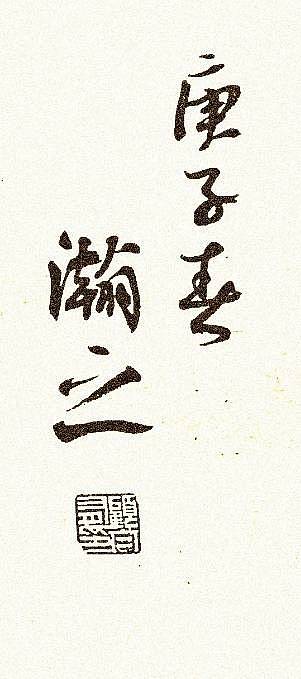 庚子春
瀚之